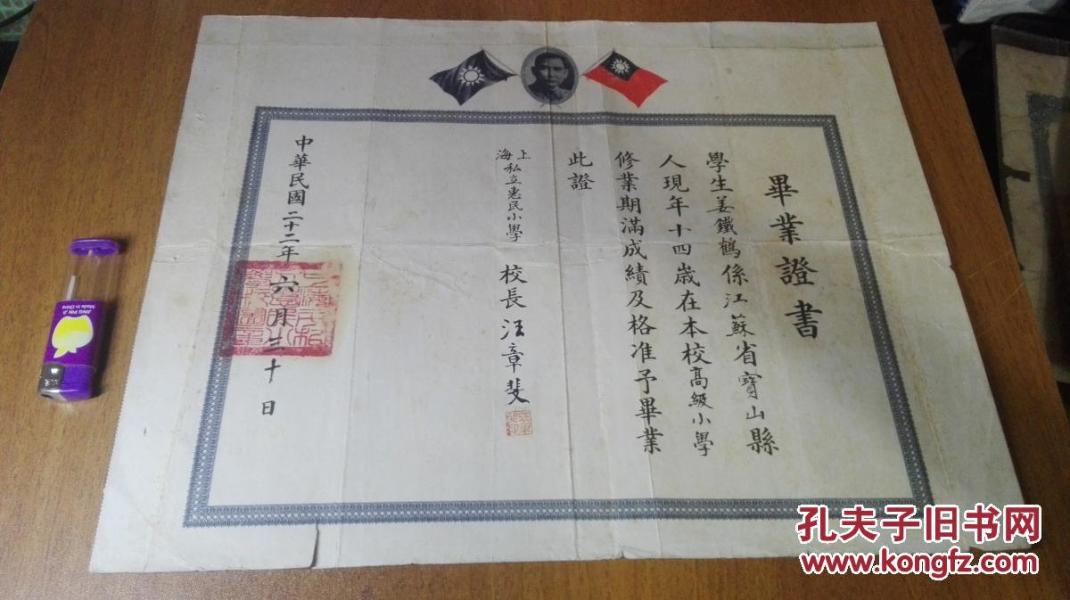 畢業證書
學生姜鐵鶴係江蘇省寶山縣
人現年十四歲在本校高級小學
修業期滿成績及格准予畢業
此證
上海私立惠民小學 校長 汪章斐
中華民國二十二年六月三十日
孔夫子旧书网
www.kongfz.com